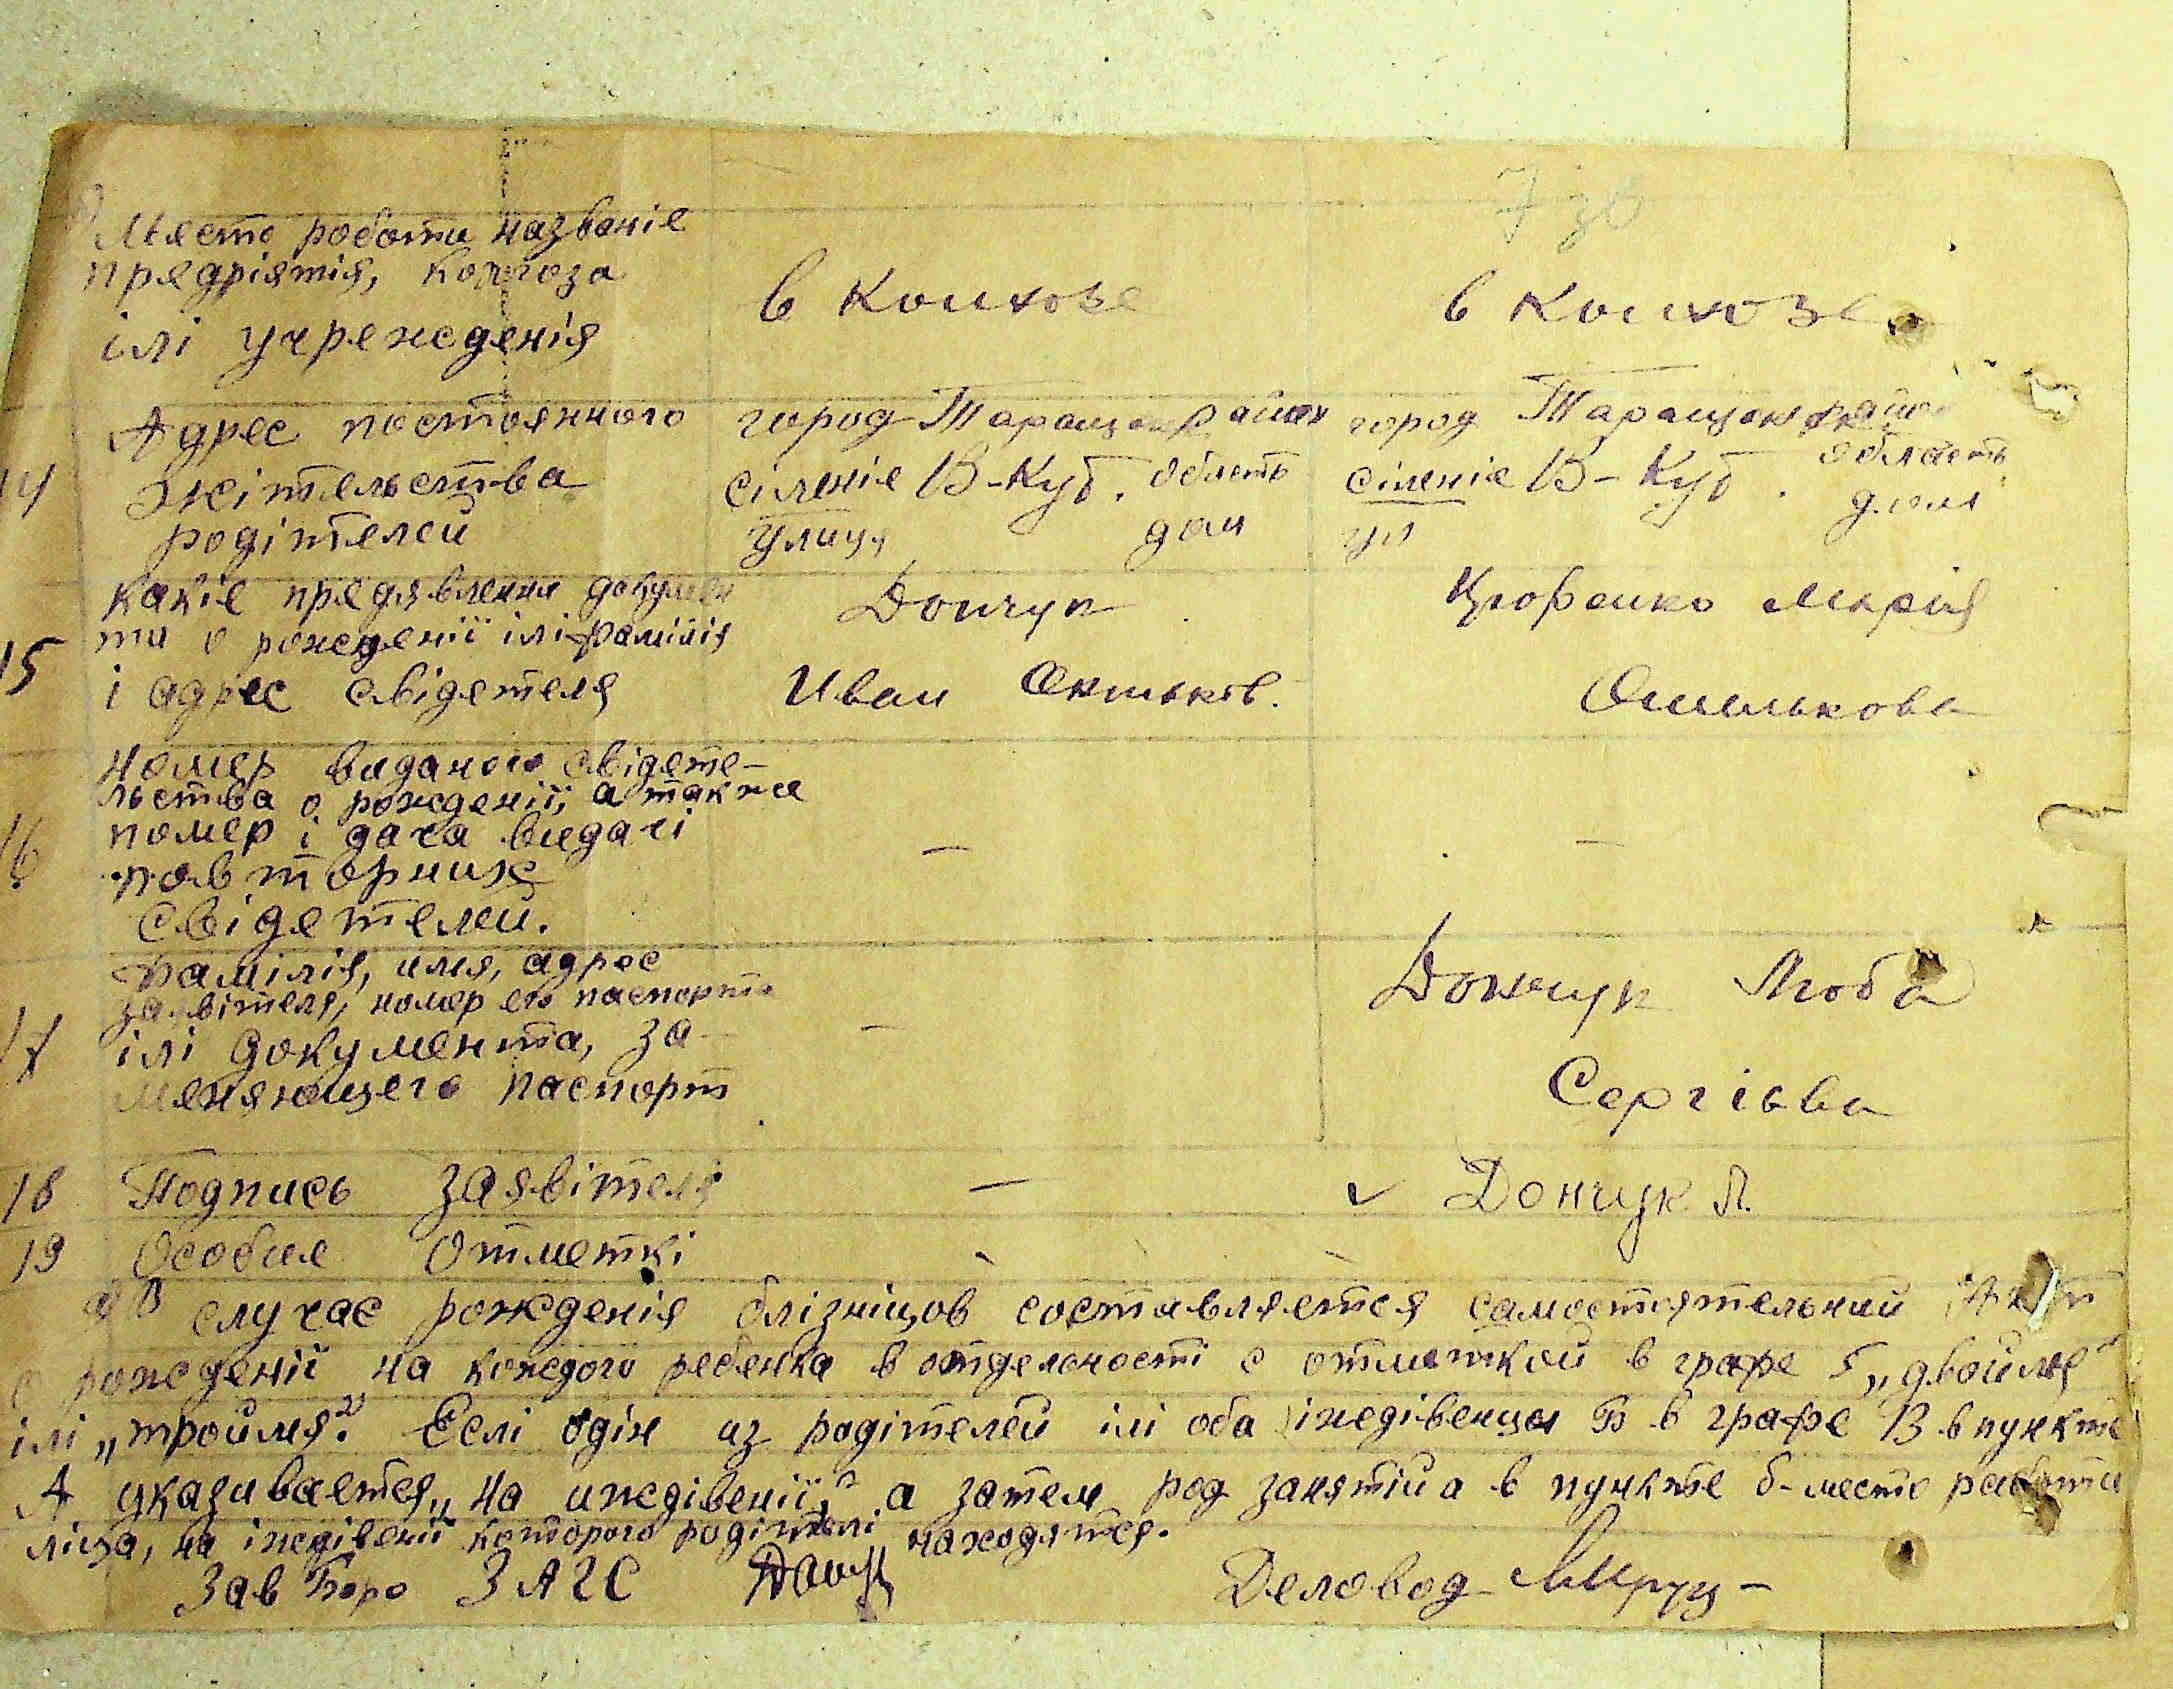 7 зв
Место роботи названіе
предріятія, колгоза
ілі учрежденія
в колхозе
в колхозе
Адрес постоянного
14 жітельства
родітелей
город Таращан район
сіленіе В-Куб. область
улица дом
город Таращан район
сіленіе В-Куб. область
ул дом
какіе предявленни докумен
15 ти о рожденії ілі фамілія
і адрес свідетеля
Дончук
Иван
Марія
номер виданого свідете-
льства о рожденії, а также
16 номер і дата видачі
повторних
свідетелей.
—
—
Фамілія, имя, адрес
заявітеля, номер его паспорта
17 ілі документа, за-
меняющего паспорт
—
Дончук Люба
Сергієва
18 Подпись заявітеля — ✓ Дончук Л.
19 Особие отметкі
В случає рожденія блізніцов составляется самостоятельний Акт
о рожденії на кождого ребенка в отдельності с отметкой в графе 5 „двойня"
ілі „тройня". Еслі одін из родітелей ілі оба іждівенци Б в графе 13 в пункте
А указивается „на иждівенії", а затем род занятій а в пункте б-место работи
ліца, на іждівенії которого родітелі находятся.
Зав Бюро ЗАГС
Деловод